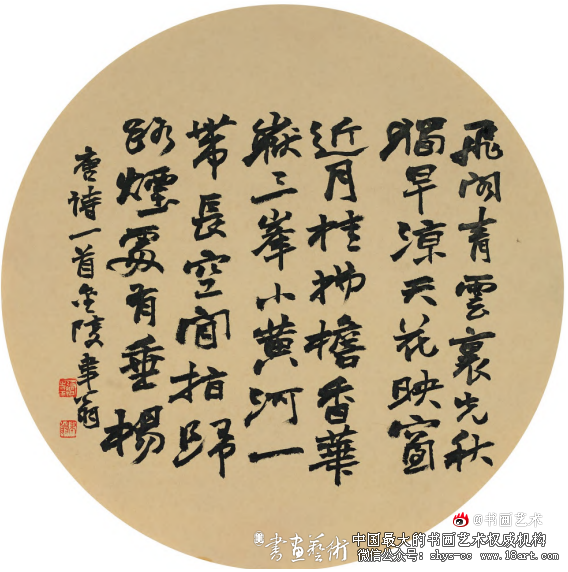 飛閣青雲裏先秋
獨早涼天花映窗
近月桂拂檐香華
嶽三峯小黃河一
帶長空間指歸
路煙處有垂楊
唐詩一首金陵翁
@书画艺术
書畫藝術
中国最大的书画艺术权威机构
微信公众号：shys-cc www.18art.com